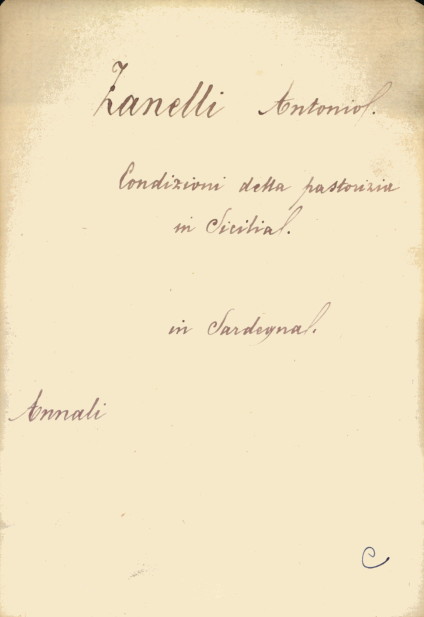 Zanelli Antonio.
Condizioni della pastorizia
in Sicilia.
in Sardegna.
Annali
C